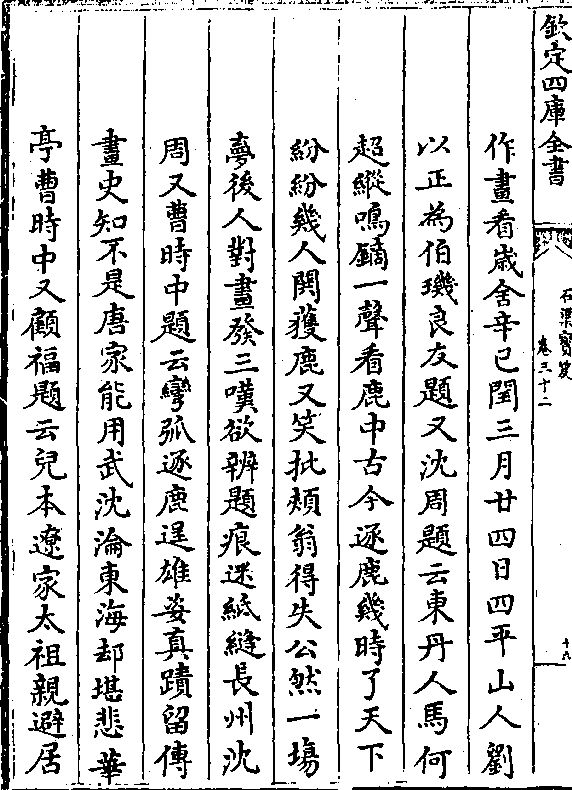 欽定四庫全書
石渠寶笈
卷三十二
十九
作畫看歳舍辛已閏三月廿四日四平山人劉
以正為伯璣良友題又沈周題云東丹人馬何
超縱鳴鏑一聲看鹿中古今逐鹿幾時了天下
紛紛幾人関獲鹿又笑批頰翁得失公然一塲
夢後人對畫發三嘆欲辨題痕迷紙縫長州沈
周又曹時中題云彎弧逐鹿逞雄姿真蹟留傳
畫史知不是唐家能用武沈淪東海却堪悲華
亭曹時中又顧福題云兒本遼家太祖親避居